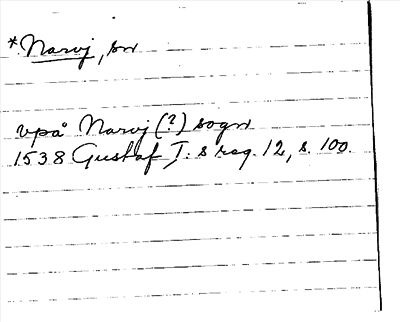 *Narvj, sn
upå Narvj (?) sogn
1538 Gustaf I:s reg. 12, s. 100.